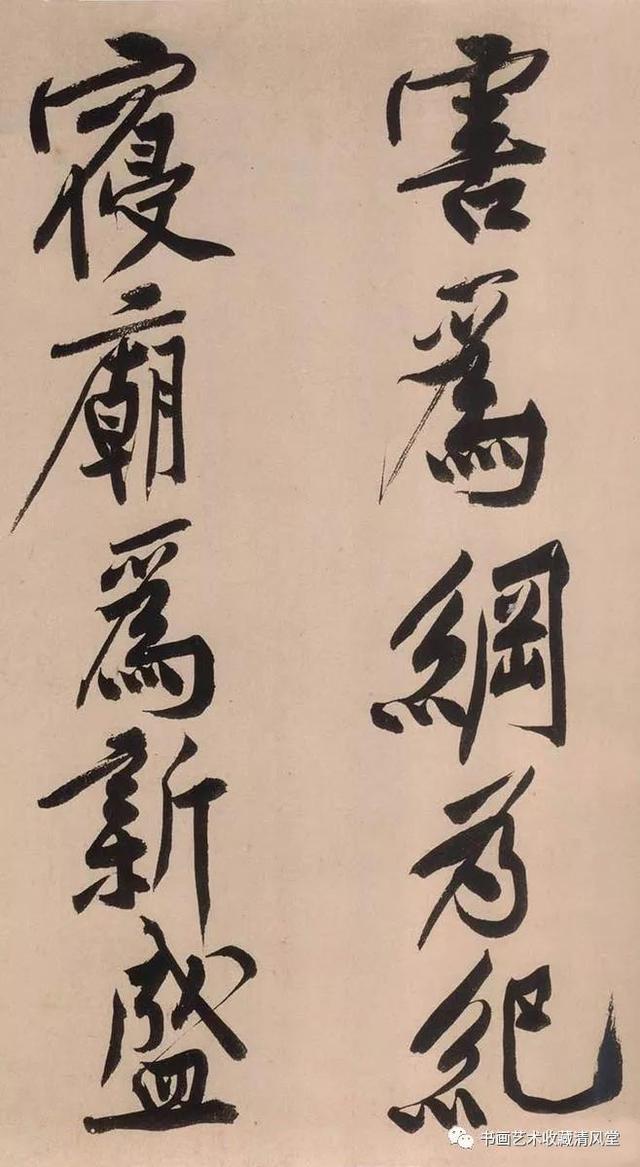 害爲綱为紀
寢廟爲新盛
书画艺术收藏清风堂